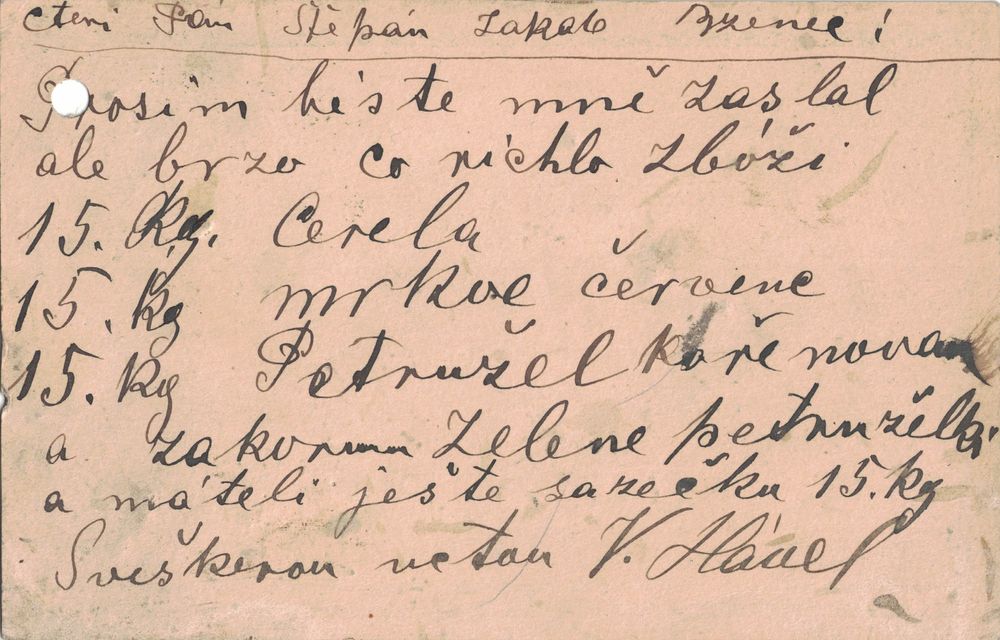 čteni Pán Štěpán Jakob Bzenec!
Prosim biste mně zaslal
ale brzo co richlo zbóži
15. Kg. Cerela
15. kg mrkve červene
15. kg Petružel kořenovan
a zakorunu zelene petruželki
a máteli ješte sazečku 15. kg
Sveškerou uctou V. Hável